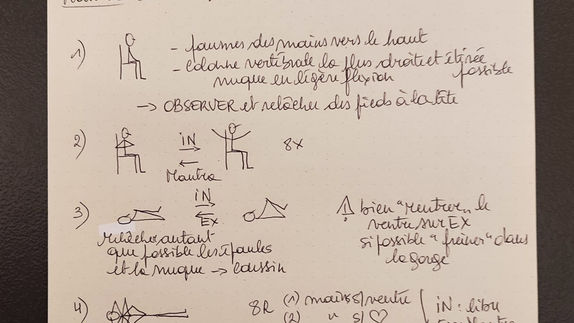 1) - paumes des mains vers le haut
- colonne vertébrale la plus droite et étirée possible
nuque en légère flexion
→ OBSERVER et relâcher des pieds à la tête
2) iN 8X
Mantra
3) iN
EX
relâcher autant
que possible les épaules
et la nuque → coussin
! bien "rentrer" le
ventre sur EX
si possible "freiner" dans
la gorge
4) 8R (1) mains s/ventre
(2) " s/ ♡
iN : libre